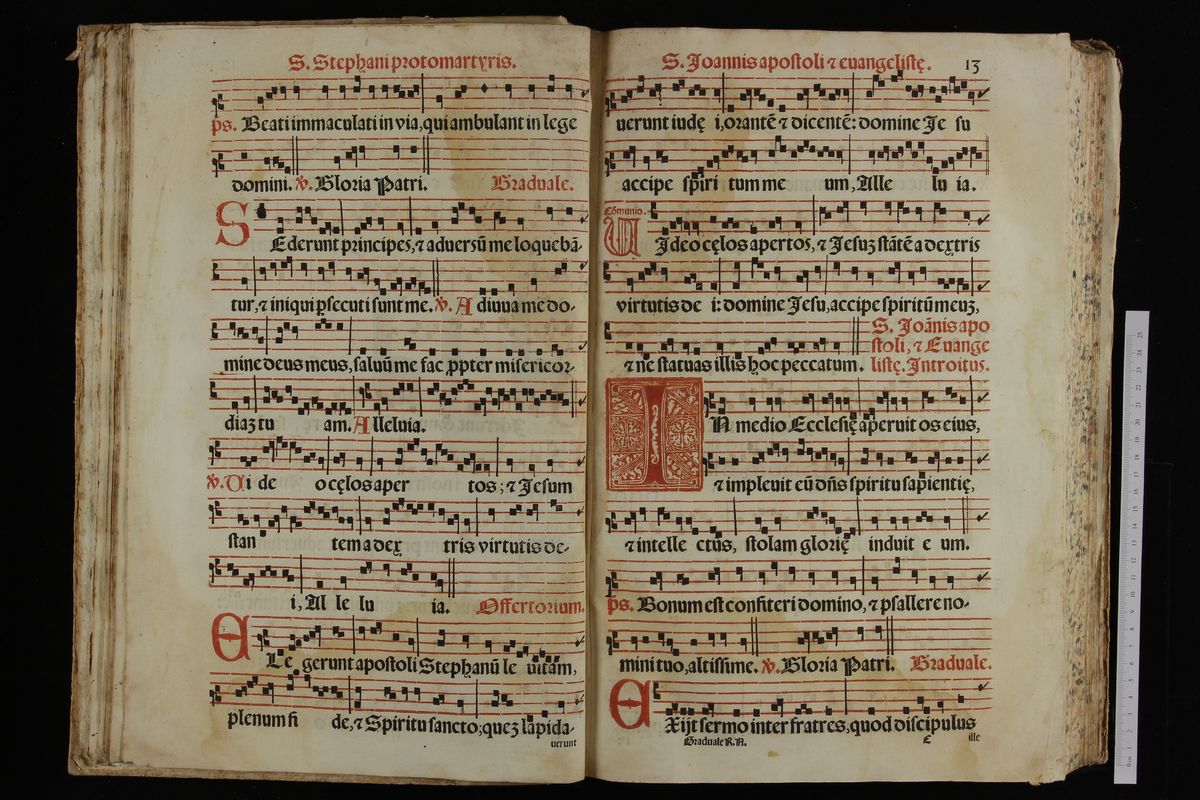 S. Stephani protomartyris.
ps. Beati immaculati in via, qui ambulant in lege
domini. ℣. Gloria Patri. Graduale.
SEderunt principes, ⁊ aduersū me loquebā-
tur, ⁊ iniqui ꝑsecuti sunt me. ℣. Adiuua me do-
mine deus meus, saluū me fac ꝓpter misericor-
diaꝫ tu am. Alleluia.
℣. Ui de o cęlos aper tos; ⁊ Jesum
stan tem a dex tris virtutis de-
i, Al le lu ia. Offertorium.
ELe gerunt apostoli Stephanū le uitam,
plenum fi de, ⁊ Spiritu sancto; queꝫ lapida-
uerunt
S. Joannis apostoli ⁊ euangelistę. 13
uerunt iudę i, orantē ⁊ dicentē: domine Je su
accipe spiri tum me um, Alle lu ia.
Cōmunio.
UIdeo cęlos apertos, ⁊ Jesuꝫ stātē a dextris
virtutis de i: domine Jesu, accipe spiritū meuꝫ,
⁊ ne statuas illis hoc peccatum.
S. Joānis apo
stoli, ⁊ Euange
listę. Introitus.
IN medio Ecclesię aperuit os eius,
⁊ impleuit eū dn̄s spiritu sapientię,
⁊ intelle ctus, stolam glorię induit e um.
ps. Bonum est confiteri domino, ⁊ psallere no-
mini tuo, altissime. ℣. Gloria Patri. Graduale.
EXijt sermo inter fratres, quod discipulus
Graduale R.N. ille